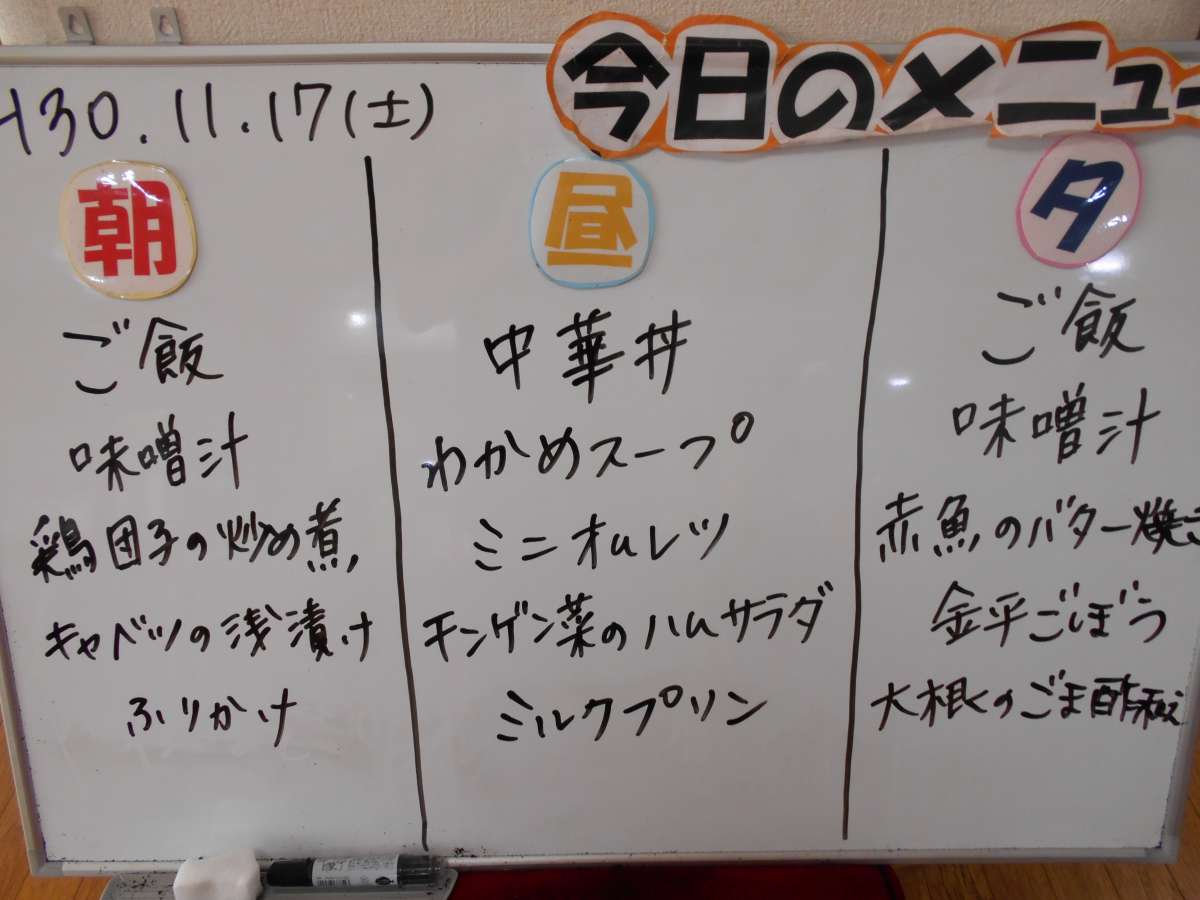 H30.11.17(土)
今日のメニュー
朝
ご飯
味噌汁
鶏団子の炒め煮
キャベツの浅漬け
ふりかけ
昼
中華丼
わかめスープ
ミニオムレツ
チンゲン菜のハムサラダ
ミルクプリン
夕
ご飯
味噌汁
赤魚のバター焼き
金平ごぼう
大根のごま酢和え